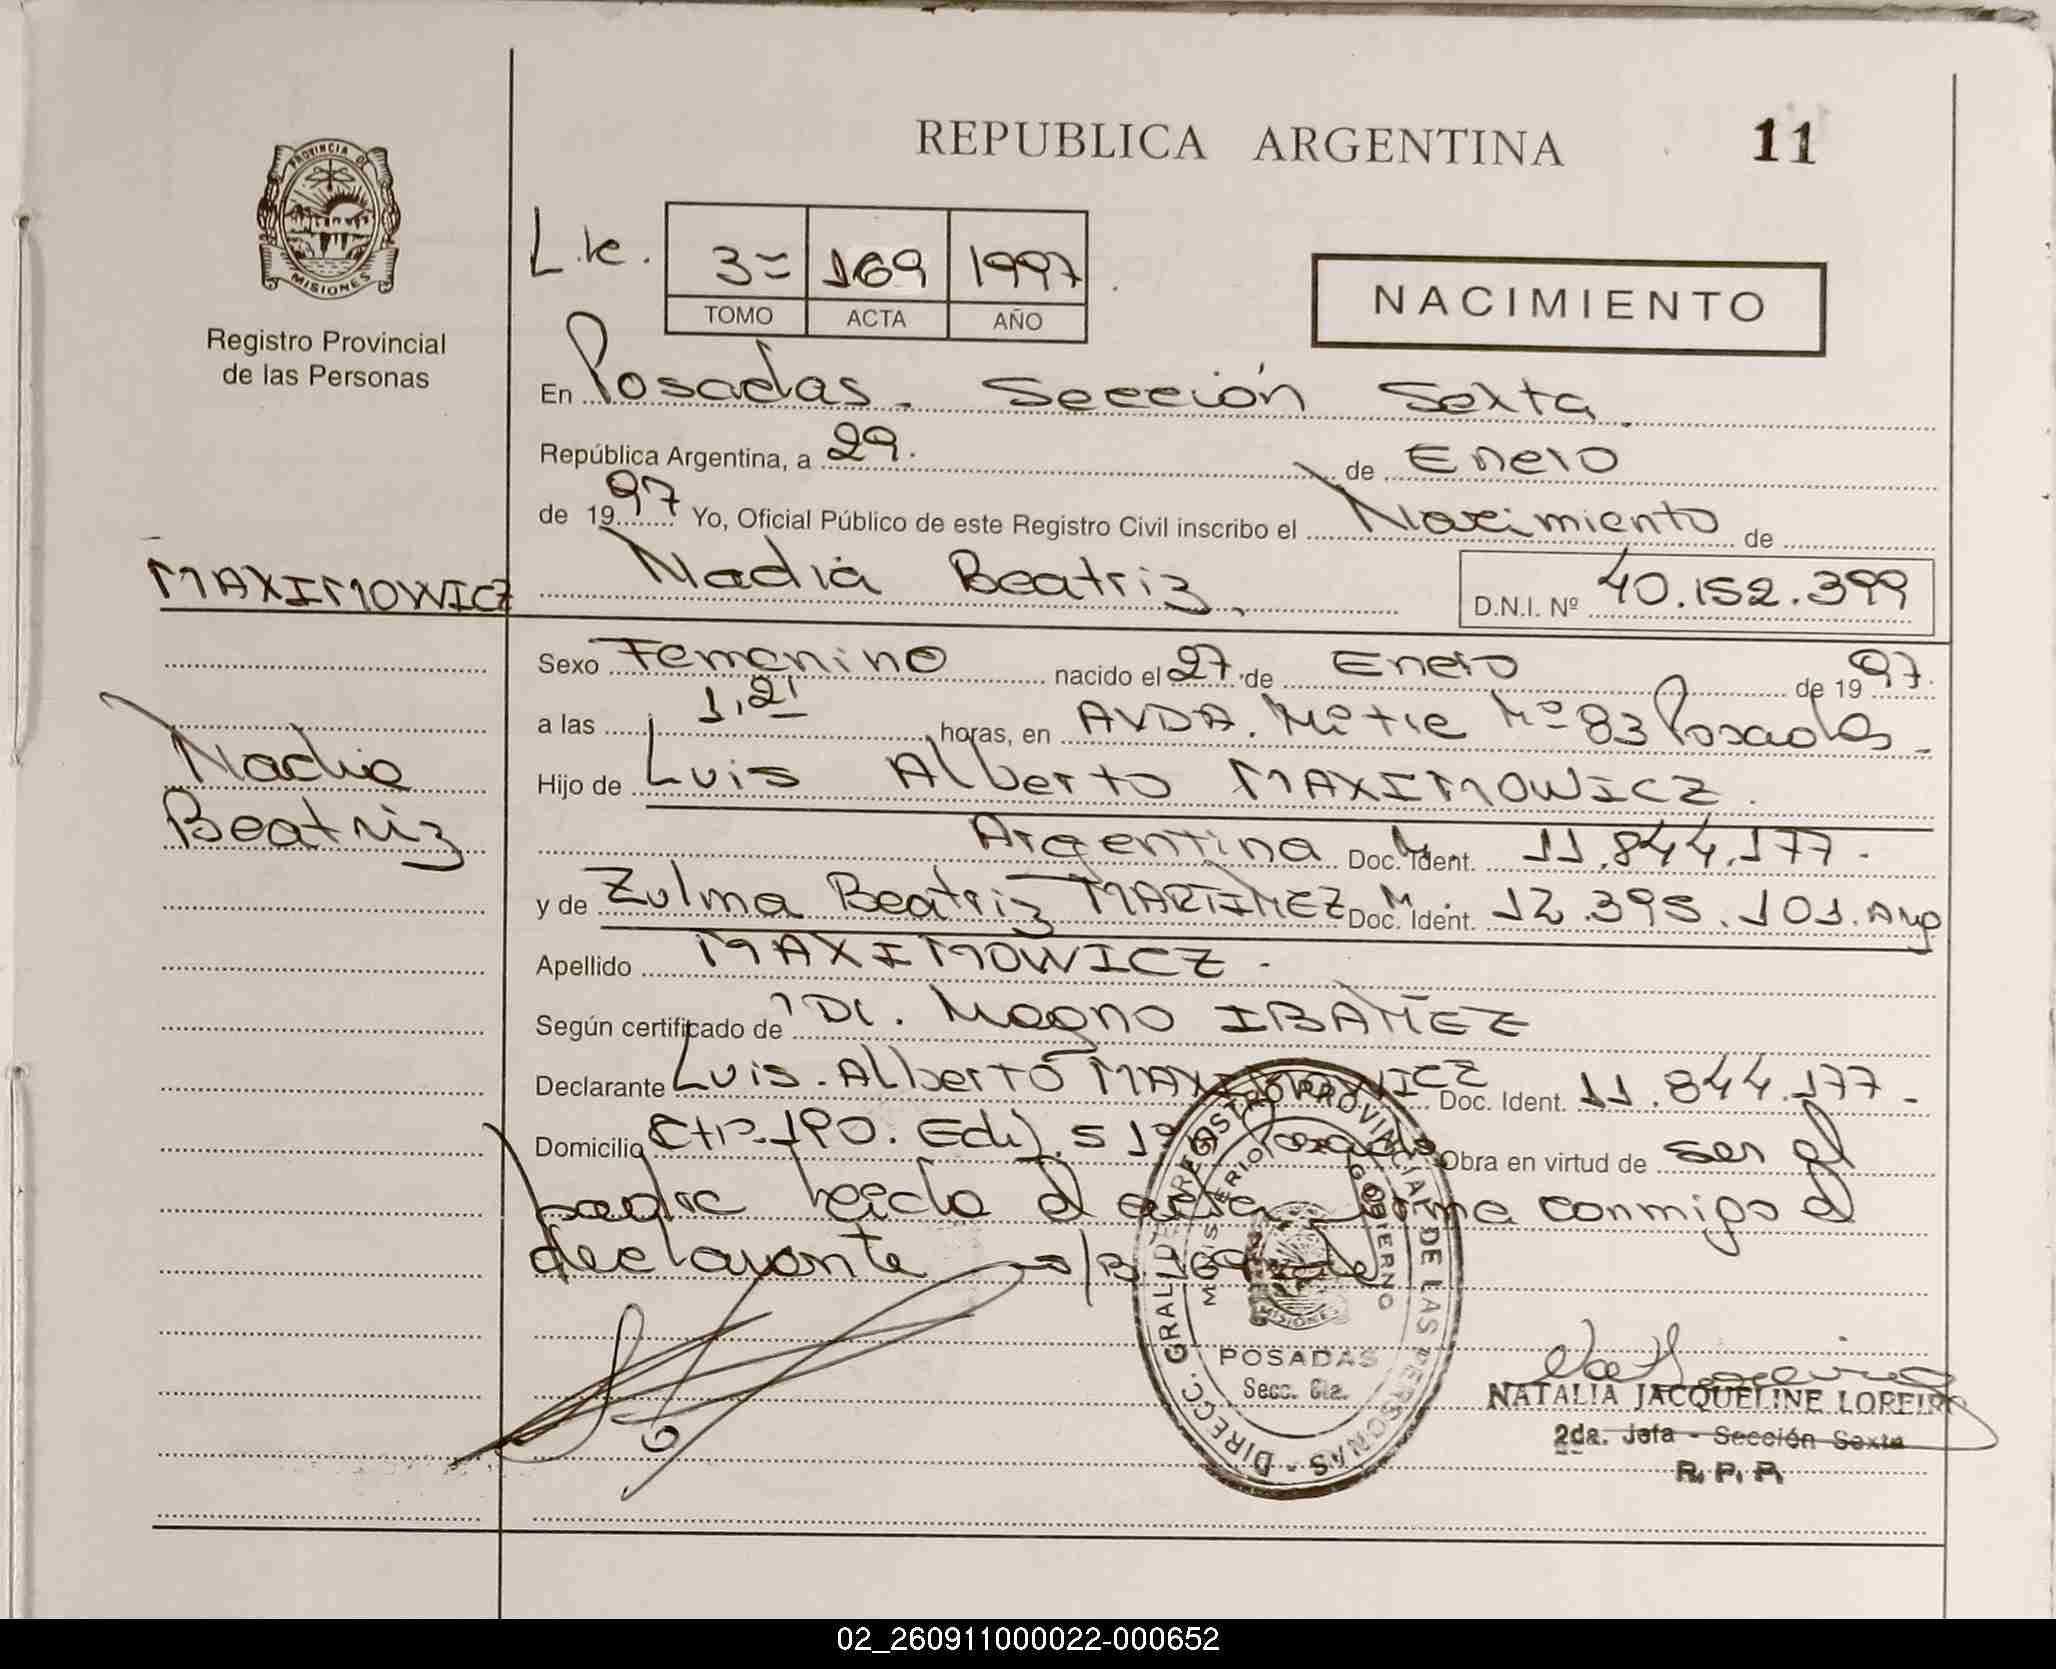 REPUBLICA ARGENTINA
11
PROVINCIA DE
MISIONES
Registro Provincial
de las Personas
3= 169 1997
TOMO ACTA AÑO
NACIMIENTO
En Posadas. Sección Sexta
República Argentina, a 29. de Enero
de 1997 Yo, Oficial Público de este Registro Civil inscribo el Nacimiento de
MAXIMOWICZ
Nadia Beatriz,
D.N.I. Nº 40.152.399
Sexo Femenino nacido el 27 de Enero de 1997.
a las 1,21 horas, en AVDA. Mitre Nº 83 Posadas
Nadia
Beatriz
Hijo de Luis Alberto MAXIMOWICZ.
Argentina Doc. Ident. 11.844.177.
y de Zulma Beatriz MARTINEZ Doc. Ident. 12.395.101. Arg
Apellido MAXIMOWICZ.
Según certificado de Dr. Magno IBAÑEZ
Declarante Luis Alberto MAXIMOWICZ Doc. Ident. 11.844.177.
Domicilio Posadas Obra en virtud de ser el
padre leída el acta firma conmigo el
declarante
DIRECC. GRAL. DE REGISTRO PROVINCIAL DE LAS PERSONAS
MINISTERIO GOBIERNO
MISIONES
POSADAS
Secc. 6ta.
NATALIA JACQUELINE LOREIRO
2da. Jefa - Sección Sexta
R. P. P.
02_260911000022-000652